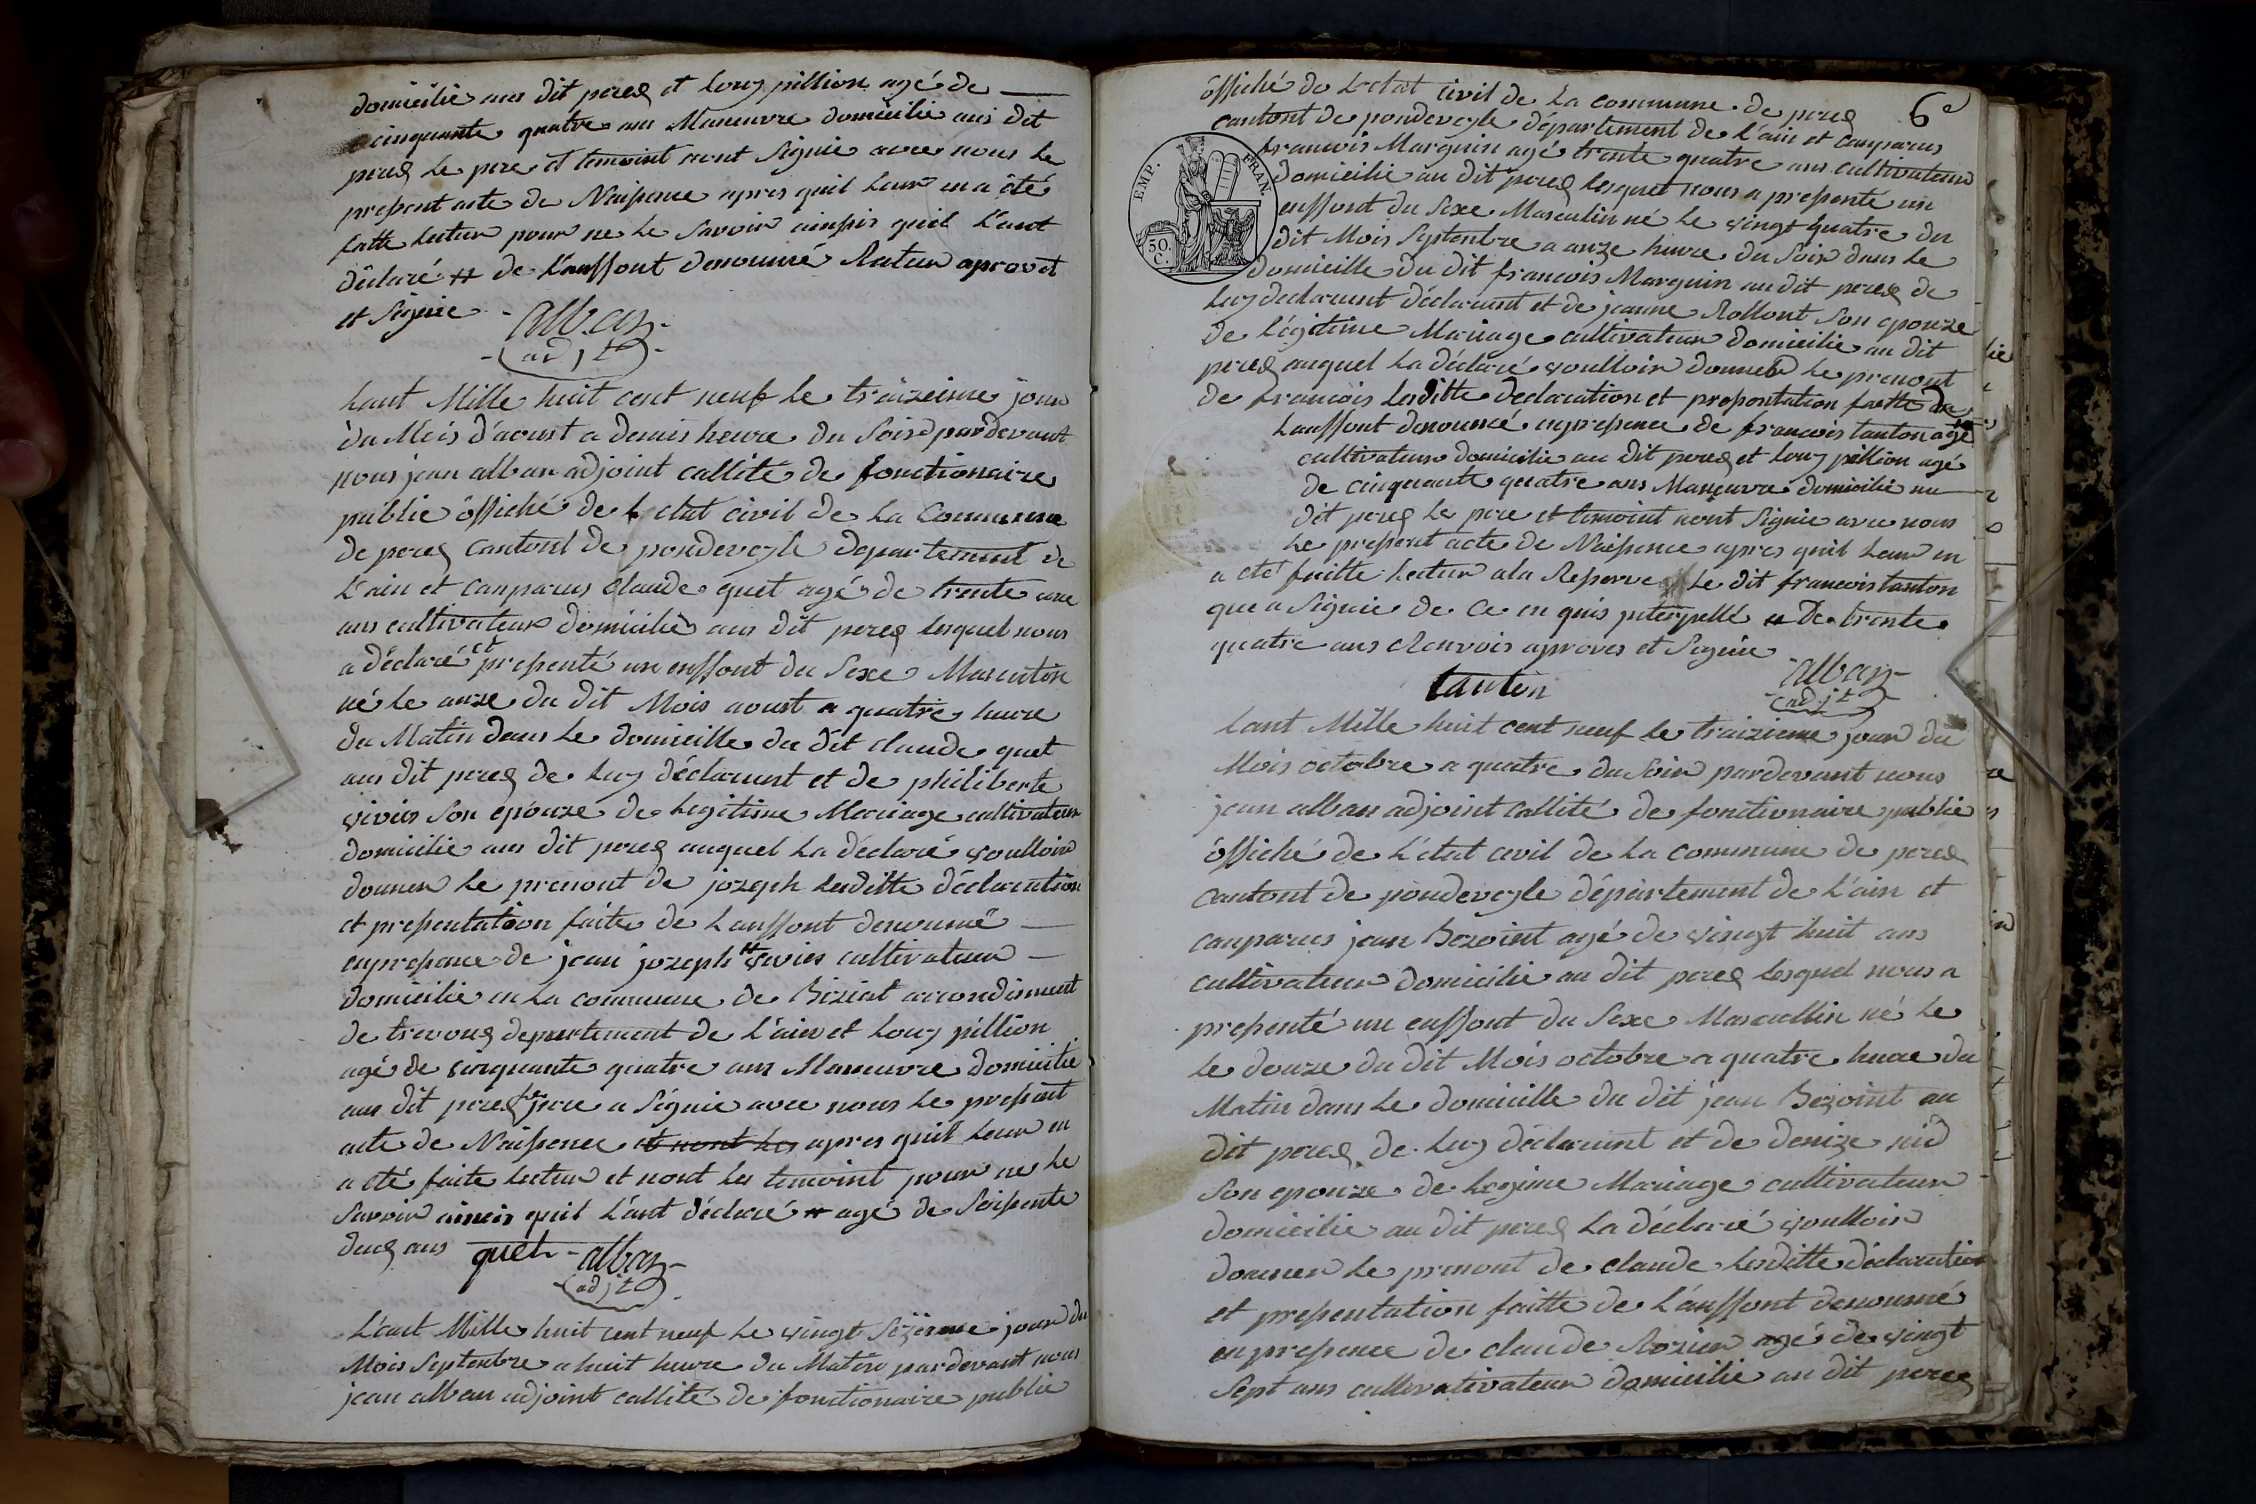 domicilie aus dit perex et louy pillion agé de
cinquante quatre ans Maneuvre domicilie aus dit
perex le pere et temoint nont Signie avec nous le
present acte de Naissence apres quil leur en a été
fatte lectur pour ne le Savoir ainssis quil l'ant
déclaré # de l'anffont denoumé Ratur aprovet
et Signie alban
adjt
lant Mille huit cent neuf le traizieme jour
du Mois d'aoust a demis heure du Soir pardevant
nous jean alban adjoint callité de fonctionaire
public öffiché de L etat civil de la Commune
de perex cantont de pondeveyle departement de
l'ain et conparus claude quet agé de trente une
ans cultivateur domicilié aus dit perex lesquel nous
a déclaré et presenté un enffont du Sexe Masculin
né le onze du dit Mois aoust a quatre heure
du Matin dans le domicille du dit claude quet
aus dit perex de luy déclarant et de philiberte
vivier Son epouze de legitime Mariage cultivateur
domicilie aus dit perex auquel la déclaré voulloir
donner le prenont de jozeph lesditte déclaration
et presentation faite de l anffont denoumé
enpresence de jean jozeph # vivier cultivateur
domicilie en la commune de Biziat arrondisment
de trevoux departement de l'ain et louy pillion
agé de cinquante quatre ans Maneuvre domicilie
aus dit perex le pere a Signie avec nous le present
acte de Naissence et nont les apres quil leur en
a été faite lectur et nont les temoint pour ne le
Savoir ainsis quil l'ant déclaré # agé de Soissente
deux ans quet alban
adjt
L'ant Mille huit cent neuf le vingt Sizieme jour du
Mois Septenbre a huit heure du Matin pardevant nous
jean alban adjoint callité de fonctionaire public
6e
öffiché de L etat civil de la commune de perex
cantont de pondeveyle département de l'ain et conparus
francois Marguin agé trente quatre ans cultivateur
domicilie au dit perex lesquel nous a presenté un
enffont du Sexe Masculin né le vingt quatre du
dit Mois Septenbre a onze heure du Soir dans le
domicille du dit francois Marguin au dit perex de
luy declarant déclarant et de jeanne Rollont Son epouze
de légitime Mariage cultivateur domicilie au dit
perex auquel la déclaré voulloir donner le prenont
de francois lesditte declaration et presentation faitte de
L anffont denoumé enpresence de francois tanton agé #
cultivateur domicilie au dit perex et louy pillion agé
de cinquante quatre ans Maneuvre domicilie au
dit perex le pere et temoint nont Signie avec nous
le present acte de Naissence apres quil leur en
a été faitte lectur a la Reserve le dit francois tanton
que a Signie de ce en quis interpellé # De trente
quatre ans Renvois aproves et Signie
tanton alban
adjt
lant Mille huit cent neuf le traizieme jour du
Mois octobre a quatre du Soir pardevant nous
jean alban adjoint callité de fonctionaire public
öffiché de L'état civil de la commune de perex
cantont de pondeveyle département de l'ain et
conparus jean Bezoint agé de vingt huit ans
cultivateur domicilie au dit perex lesquel nous a
presenté un enffont du Sexe Mascullin né le
le douze du dit Mois octobre a quatre heure du
Matin dans le domicille du dit jean Bezoint au
dit perex de luy déclarent et de denize nid
Son epouze de legime Mariage cultivateur
domicilie au dit perex la déclaré voulloir
donner le prenont de claude lesditte déclaration
et presentation faitte de L'anffont denoumé
enpresence de claude Rozier agé de vingt
Sept ans cultivativateur domicilie au dit perex
EMP. FRAN.
50. C.